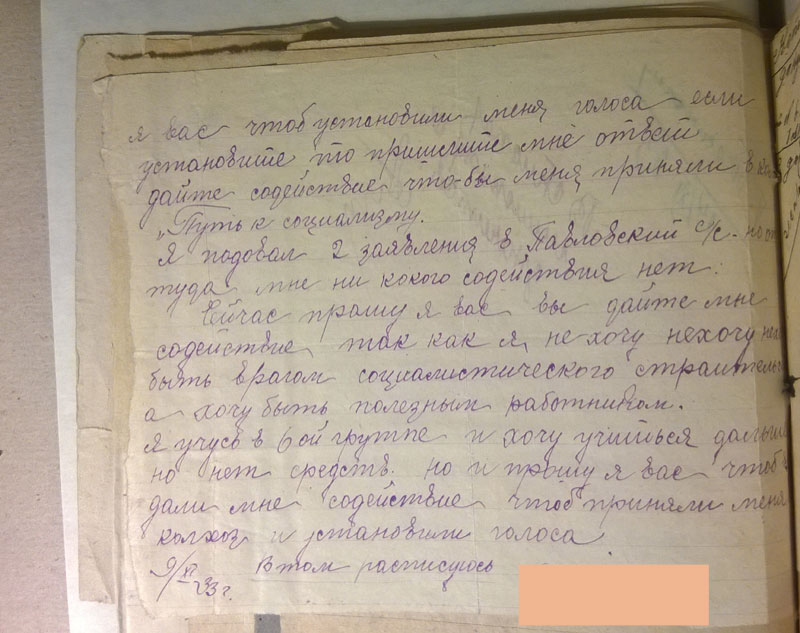 я вас чтоб установили меня голоса если
установите то пришлите мне ответ
дайте содействие что-бы меня приняли в
„Путь к социализму.
Я подовал 2 заявления в Павловский с/с. но от
туда мне ни кокого содействия нет.
Сейчас прошу я вас вы дайте мне
содействие, так как я не хочу нехочу
быть врагом социалистического строитель
а хочу быть полезным работником.
я учусь в 6 ой группе и хочу учиться дальше
но нет средств. но и прошу я вас чтоб
дали мне содействие чтоб приняли меня
колхоз и установили голоса
9/XI-33 г. В том расписуюсь